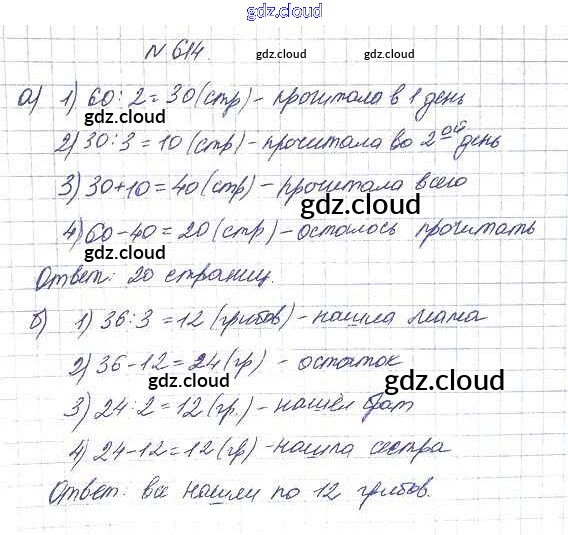 gdz.cloud
N 614. gdz.cloud gdz.cloud
а) 1) 60 : 2 = 30 (стр) - прочитала в 1 день
gdz.cloud
2) 30 : 3 = 10 (стр) - прочитала во 2ой день
gdz.cloud
3) 30+10 = 40 (стр) - прочитала всего
gdz.cloud
4) 60-40 = 20 (стр) - осталось прочитать
gdz.cloud
Ответ: 20 страниц.
gdz.cloud
б) 1) 36 : 3 = 12 (грибов) - нашла мама
gdz.cloud
2) 36-12 = 24 (гр) - остаток
gdz.cloud
3) 24 : 2 = 12 (гр.) - нашёл брат
gdz.cloud
4) 24-12 = 12 (гр) - нашла сестра.
gdz.cloud gdz.cloud
Ответ: все нашли по 12 грибов.